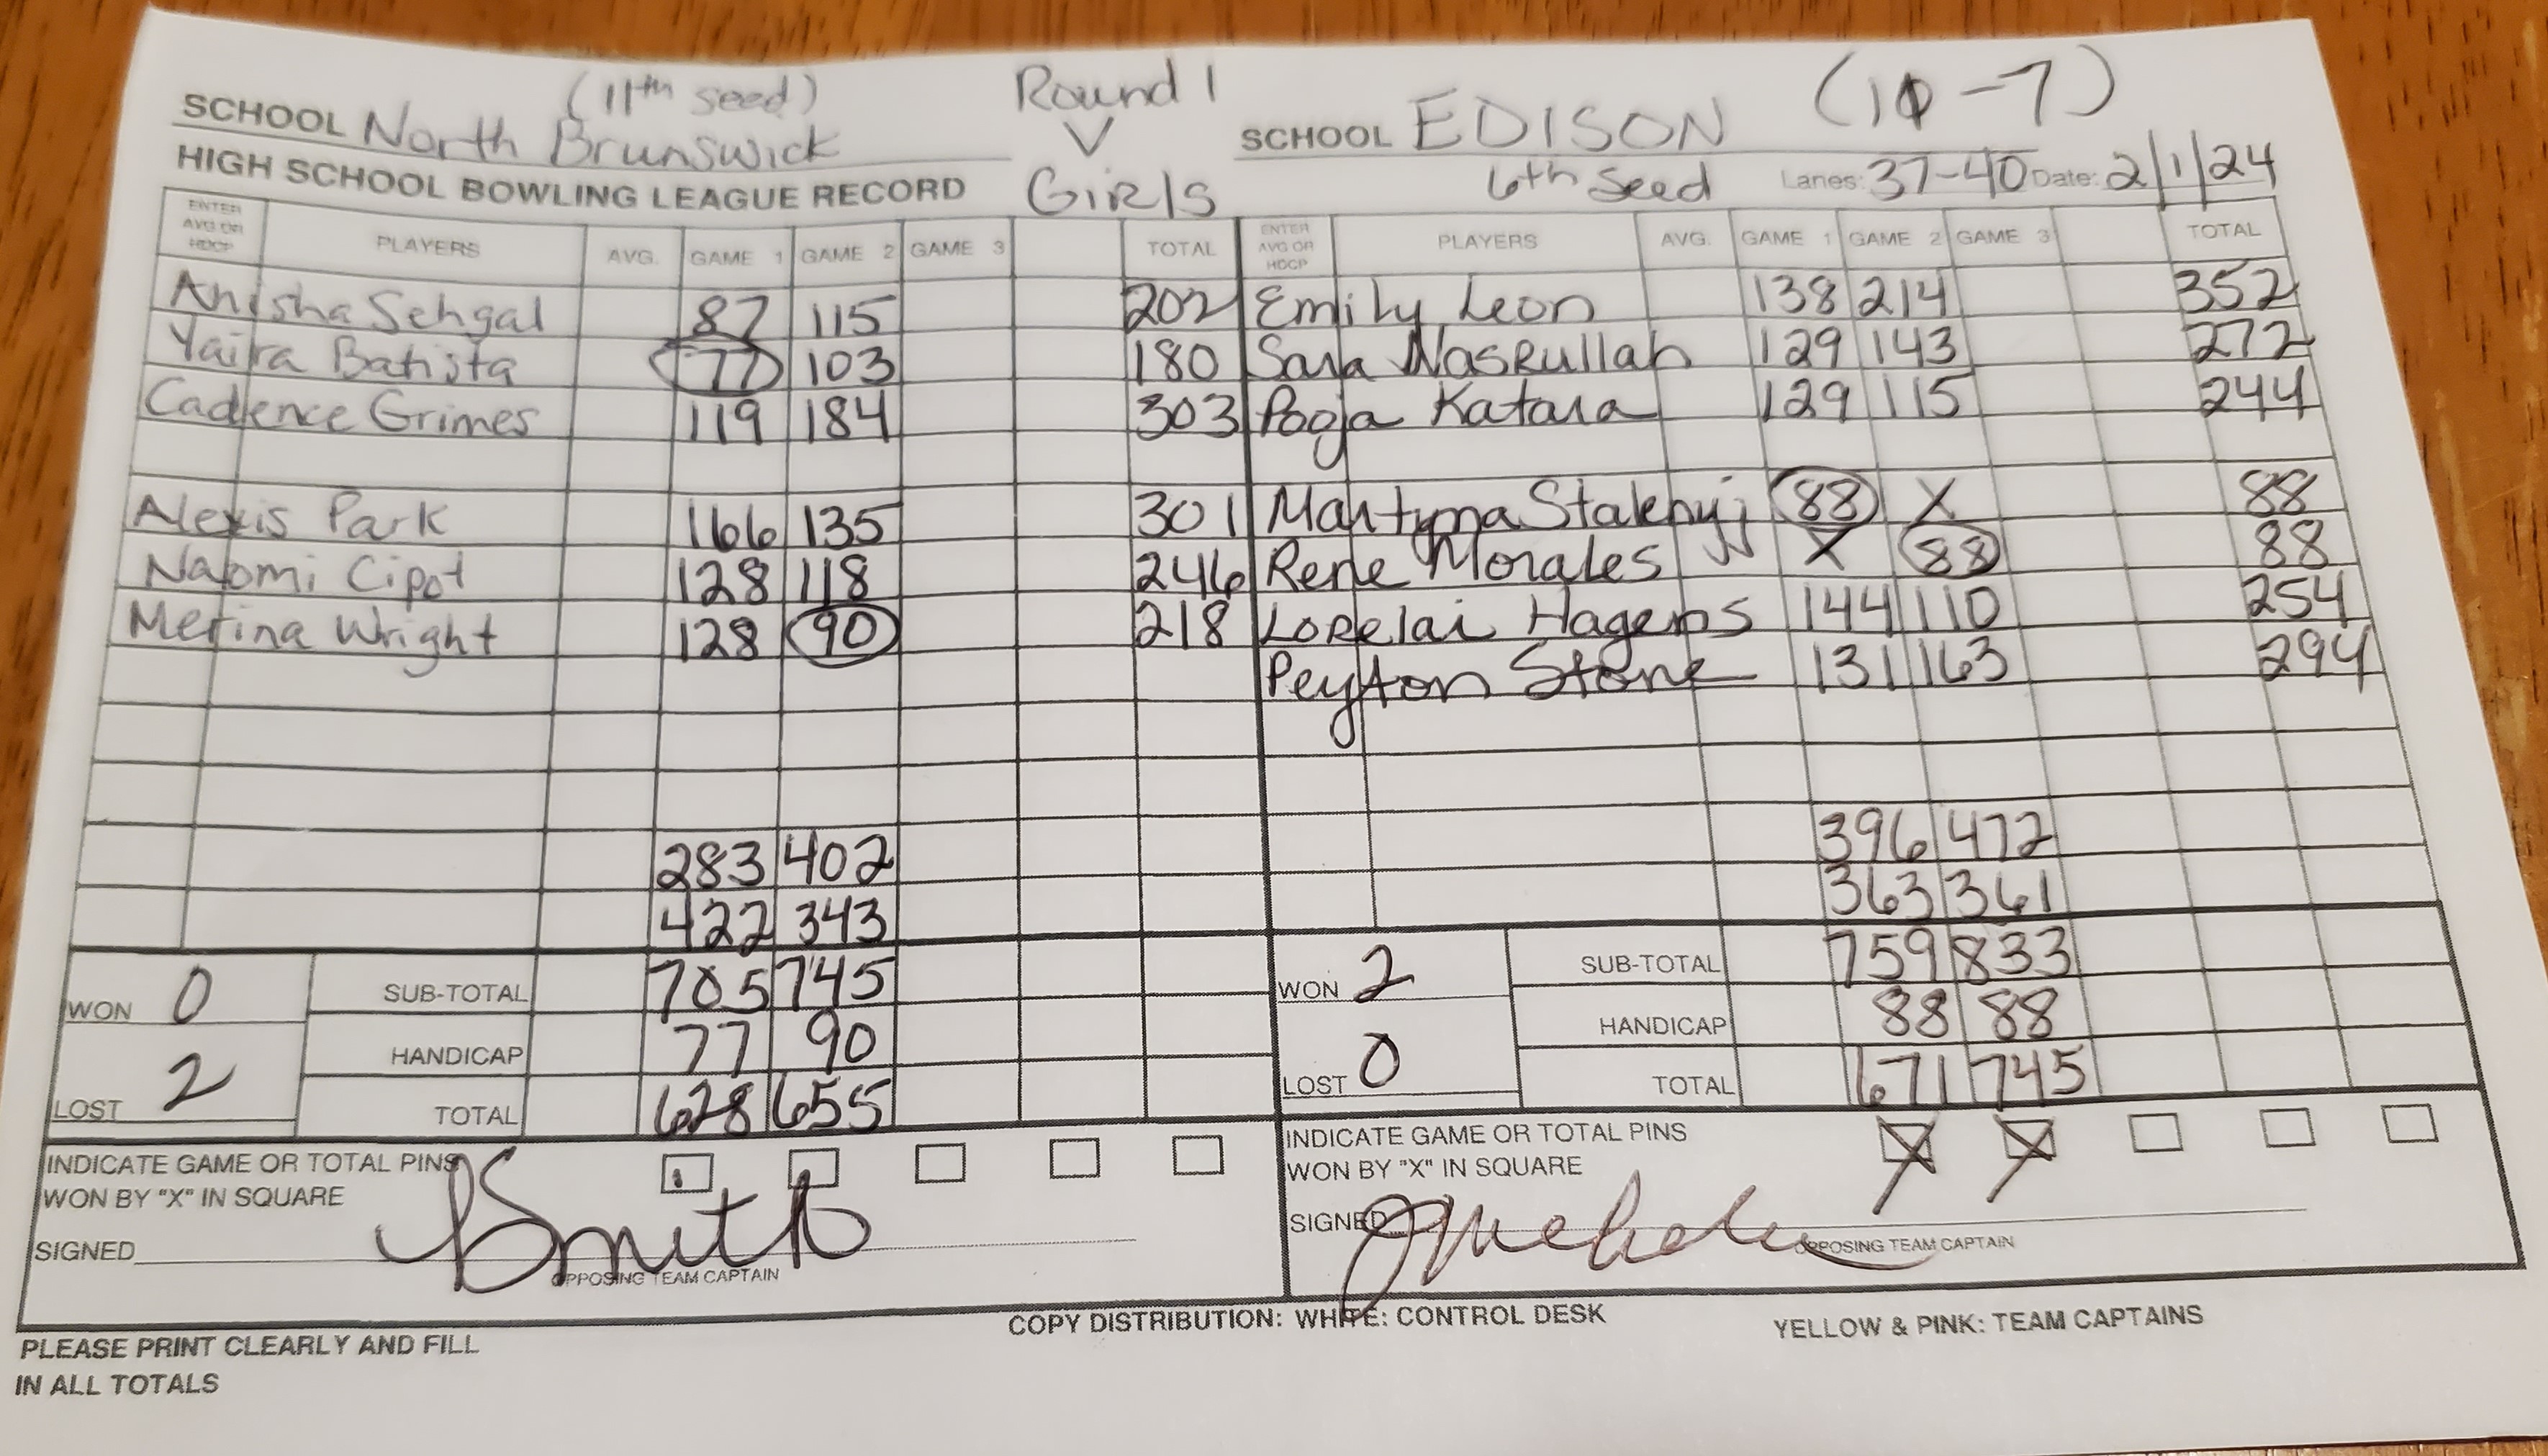 (11th seed) Round 1 (10-7)
SCHOOL North Brunswick V SCHOOL EDISON
HIGH SCHOOL BOWLING LEAGUE RECORD Girls 6th Seed Lanes: 37-40 Date: 2/1/24
ENTER AVG OR HDCP PLAYERS AVG. GAME 1 GAME 2 GAME 3 TOTAL ENTER AVG OR HDCP PLAYERS AVG. GAME 1 GAME 2 GAME 3 TOTAL
Anisha Sehgal 87 115 202 Emily Leon 138 214 352
Yaira Batista 77 103 180 Sara Nasrullah 129 143 272
Cadence Grimes 119 184 303 Pooja Katara 129 115 244
Alexis Park 166 135 301 88 X 88
Naomi Cipot 128 118 246 Rene Morales X 88 88
Merina Wright 128 90 218 Lorelai Hagens 144 110 254
Peyton Stone 131 163 294
283 402 396 472
422 343 363 361
WON 0 SUB-TOTAL 705 745 WON 2 SUB-TOTAL 759 833
HANDICAP 77 90 HANDICAP 88 88
LOST 2 TOTAL 628 655 LOST 0 TOTAL 671 745
INDICATE GAME OR TOTAL PINS INDICATE GAME OR TOTAL PINS X X
WON BY "X" IN SQUARE WON BY "X" IN SQUARE
SIGNED Smith SIGNED
OPPOSING TEAM CAPTAIN OPPOSING TEAM CAPTAIN
COPY DISTRIBUTION: WHITE: CONTROL DESK YELLOW & PINK: TEAM CAPTAINS
PLEASE PRINT CLEARLY AND FILL
IN ALL TOTALS